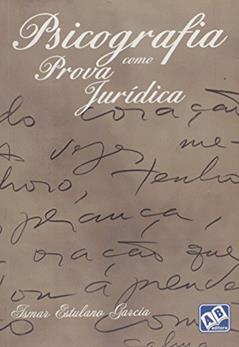 Psicografia
como
Prova
Jurídica
do coração
as vezes me
tenho
esperança,
oração que
aprende
com
Ismar Estulano Garcia
AB
editora